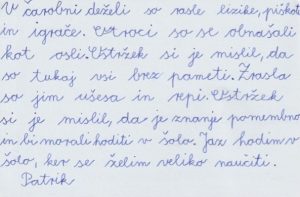 V čarobni deželi so rasle lizike, piškoti
in igrače. Otroci so se obnašali
kot osli. Ostržek si je mislil, da
so tukaj vsi brez pameti. Zrasla
so jim ušesa in repi. Ostržek
si je mislil, da je znanje pomembno
in bi morali hoditi v šolo. Jaz hodim v
šolo, ker se želim veliko naučiti.
Patrik